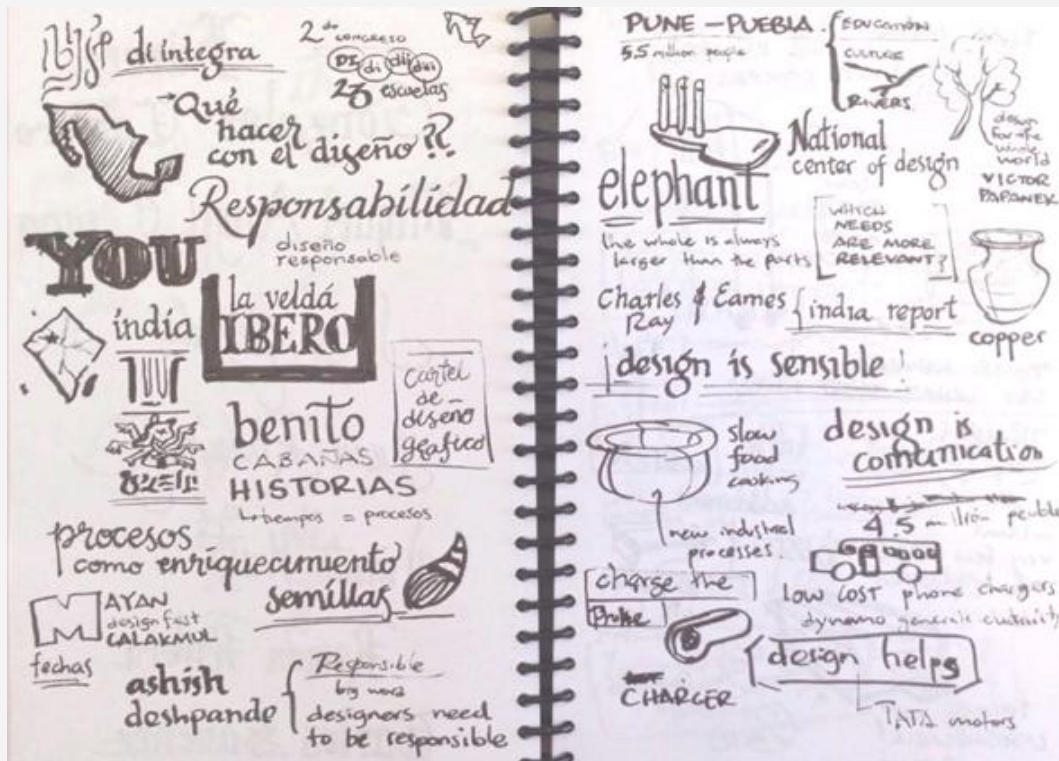 di integra
2do CONGRESO
DI di dij dui
23 escuelas
Qué
hacer
con el diseño ??
Responsabilidad
YOU
diseño
responsable
la veldá
IBERO
índía
cartel
de
diseño
gráfico
benito
CABAÑAS
HISTORIAS
tiempos = procesos
procesos
como enriquecimiento
semillas
MAYAN
design fest
CALAKMUL
fechas
ashish
deshpande
Responsible
big word
designers need
to be responsible
PUNE – PUEBLA
5.5 million people
EDUCATION
CULTURE
RIVERS
National
center of design
design
for the
whole
world
VICTOR
PAPANEK
elephant
the whole is always
larger than the parts
WHICH
NEEDS
ARE MORE
RELEVANT?
Charles & Eames
Ray
india report
copper
design is sensible
slow
food
cooking
design is
comunication
new industrial
processes
4.5 million people
charge the
Phone
low COST phone chargers
dynamo generate
design helps
CHARGER
TATA motors